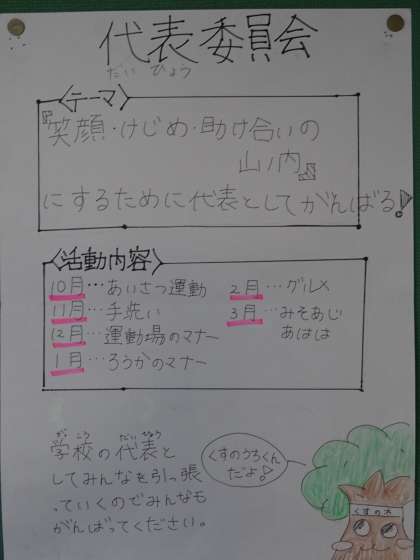 代表委員会
だい ひょう
テーマ
『笑顔・けじめ・助け合いの
山ノ内』
にするために代表としてがんばる!
活動内容
10月…あいさつ運動
11月…手洗い
12月…運動場のマナー
1月…ろうかのマナー
2月…グルメ
3月…みそあじ
あはは
がっこう だいひょう
学校の代表と
してみんなを引っ張
っていくのでみんなも
がんばってください。
くすのうろくん
だよ!
くすの木